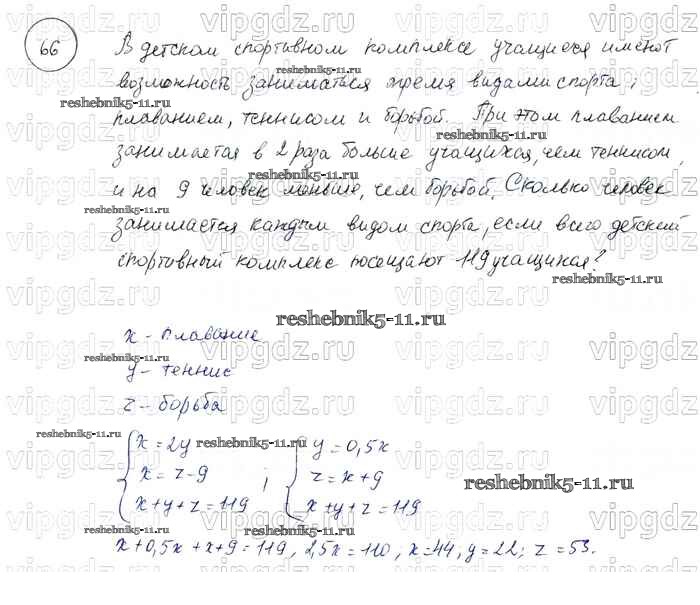 66
В детском спортивном комплексе учащиеся имеют
возможность заниматься тремя видами спорта:
плаванием, теннисом и борьбой. При этом плаванием
занимается в 2 раза больше учащихся, чем теннисом,
и на 9 человек меньше, чем борьбой. Сколько человек
занимается каждым видом спорта, если всего детский
спортивный комплекс посещают 119 учащихся?
x - плавание
y - теннис
z - борьба
x = 2y ; y = 0,5x
x = z - 9 z = x + 9
x + y + z = 119 x + y + z = 119
x + 0,5x + x + 9 = 119, 2,5x = 110, x = 44, y = 22; z = 53.
vipgdz.ru
reshebnik5-11.ru